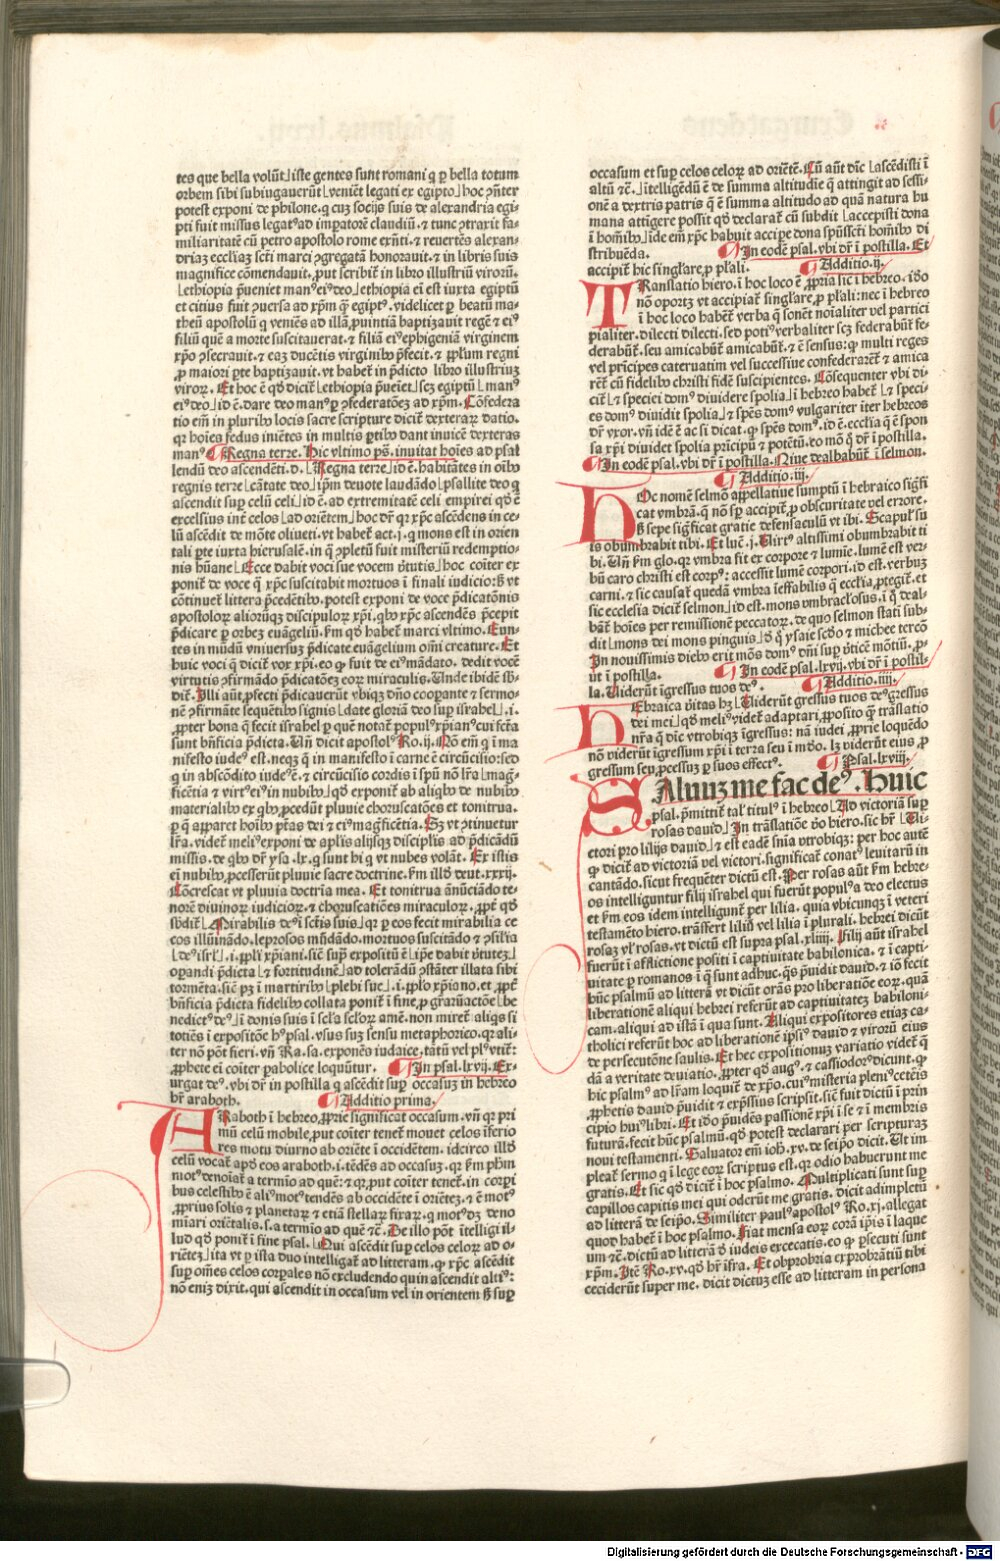 tes que bella volūt⌋iste gentes sunt romani q̄ p̱ bella totum
orbem sibi subiugauerūt⌊veniēt legati ex egipto⌋hoc ꝯñter
potest exponi de philone.q̄ cuꝫ socijs suis de alexandria egi-
pti fuit missus legatꝰad imꝑatorē claudiū.⁊ tunc ꝯtraxit fa-
miliaritatē cū petro apostolo rome exn̄ti.⁊ reuertēs alexan-
driaꝫ eccl̄iaꝫ scti marci ꝯgregatā honorauit.⁊ in libris suis
magnifice cōmendauit.ꝓut scribit̄ in libro illustriū viroꝝ.
⌊ethiopia p̄ueniet manꝰeiꝰdeo⌋ethiopia ei est iuxta egiptū
et citius fuit ꝯuersa ad xp̄m q̄ egiptꝰ.videlicet ꝑ beatū ma-
theū apostolū q̄ veniēs ad illā.ꝓuintiā baptizauit regē ⁊ eiꝰ
filiū quē a morte suscitauerat.⁊ filiā eiꝰephigeniā virginem
xp̄o ꝯsecrauit.⁊ eaꝫ ducētis virginibꝰ p̄fecit.⁊ ꝓplm̄ regni
ꝓ maiori ꝑte baptizauit.vt habet̄ in p̄dicto libro illustriuꝫ
viroꝝ. Et hoc ē qd̄ dicit̄⌊ethiopia p̄ueiet⌋scꝫ egiptū⌊manꝰ
eiꝰdeo⌋id ē.dare deo manꝰꝑ ꝯfederatōeꝫ ad xp̄m. Cōfedera
tio em̄ in pluribꝰ locis sacre scripture dicit̄ dexteraꝝ datio.
qꝛ hoīes fedus inietes in multis ꝑtibꝰ dant inuicē dexteras
manꝰ. Regna terre. Hic vltimo ps̄.inuitat hoīes ad psal
lendū deo ascendēti.d.⌊Regna terre⌋id ē.habitātes in oībꝰ
regnis terre⌊cātate deo⌋ip̄m deuote laudādo⌊psallite deo q̄
ascendit suꝑ celū celi⌋id ē.ad extremitatē celi empirei qd̄ ē
excelsius int̄ celos⌊ad oriētem⌋hoc dr̄ qꝛ xp̄c ascēdens in ce-
lū ascēdit de mōte oliueti.vt habet̄ act.j.q̄ mons est in orien
tali ꝑte iuxta hierusalē.in q̄ ꝯpletū fuit misteriū redemptio-
nis hūane⌊Ecce dabit voci sue vocem v̄tutis⌋hoc coīter ex
ponit̄ de voce q̄ xp̄c suscitabit mortuos ī finali iudicio:sꝫ vt
cōtinuet̄ littera p̄cedētibꝰ.potest exponi de voce p̄dicatōnis
apostoloꝝ alioruꝫqꝫ discipuloꝝ xp̄i.qbꝰ xp̄c ascendēs p̄cepit
p̄dicare ꝑ orbeꝫ euāgeliū.ꝫm qd̄ habet̄ marci vltimo. Eun-
tes in mūdū vniuersuꝫ p̄dicate euāgelium om̄i creature. Et
huic voci q̄ dicit̄ vox xp̄i.eo ꝙ fuit de eiꝰmādato.dedit vocē
virtutis ꝯfirmādo p̄dicatōeꝫ eoꝝ miraculis. Unde ibidē sb̄-
dit̄. Illi aūt.ꝓfecti p̄dicauerūt vbiqꝫ dn̄o coopante ⁊ sermo-
nē ꝯfirmāte sequētibꝰ signis⌊date gloriā deo suꝑ israhel⌋.i.
ꝓpter bona q̄ fecit israhel ꝑ quē notat̄ populꝰxp̄ianꝰcui fcta
sunt bn̄ficia p̄dicta. Un̄ dicit apostolꝰ Ro.ij. Nō em̄ q̄ ī ma
nifesto iudeꝰ est.neqꝫ q̄ in manifesto ī carne ē circūcisio:sed
q̄ in abscōdito iudeꝰē.⁊ circūcisio cordis ī sp̄ū nō lr̄a⌊maḡ-
ficētia ⁊ virtꝰeiꝰin nubibꝰ⌋qd̄ exponit̄ ab aliqbꝰ de nubibꝰ
materialibꝰ ex qbꝰ ꝓcedūt pluuie choruscatōes et tonitrua.
ꝑ q̄ apparet hoībꝰ ptās dei ⁊ eiꝰmaḡficētia. Sꝫ vt ꝯtinuetur
lr̄a.videt̄ meliꝰexponi de aplīs alijsqꝫ disciplis ad p̄dicādū
missis.de qbꝰ dr̄ ysa.lx.q̄ sunt hi q̄ vt nubes volāt. Ex istis
ei nubibꝰ ꝓcesserūt pluuie sacre doctrine.ꝫm illd̄ deut.xxxij.
Cōcrescat vt pluuia doctrīa mea. Et tonitrua ānūciādo te-
norē diuinoꝝ iudicioꝝ.⁊ choruscatiōes miraculoꝝ.ꝓpt̄ qd̄
sb̄dit̄⌊Mirabilis deꝰī scti͂s suis⌋qꝛ ꝑ eos fecit mirabilia ce
cos illuīnādo.leprosos mūdādo.mortuos suscitādo ⁊ ꝯsilia
⌊deꝰisrl̄⌋.i.ꝓplī xp̄iani.sic̄ supͣ expositū ē⌊ip̄e dabit v̄tuteꝫ⌋
oꝑandi p̄dicta⌊⁊ fortitudinē⌋ad tolerādū ꝯstāter illata sibi
tormēta.sic̄ pꝫ ī martiribꝰ⌊plebi sue⌋.i.ꝓplo xp̄iano.et.ꝓpt̄
bn̄ficia p̄dicta fidelibꝰ collata ponit̄ ī fine.ꝓ gr̄aꝝactōe⌊be
nedictꝰdeꝰ⌋ī donis suis ī scl̄a scl̄oꝝ amē.non miret̄ aliqs si
totiēs ī expositōe hꝰpsal.vsus suꝫ sensu metaphorico.qꝛ ali-
ter nō pōt fieri.vn̄ Ra.sa.exponēo iudaice.tātū vel plꝰvtit̄:
ꝓphete ei coīter ꝑabolice loquūtur. In psal.lxvij. Ex-
urgat deꝰ.vbi dr̄ in postilla q̄ ascēdit suꝑ occasuꝫ in hebreo
hr̄ araboth. Additio prima.
ARaboth ī hebreo.ꝓprie significat occasum.vn̄ qꝛ pri
mū celū mobile.put coīter tenet̄ mouet celos īferio
res motu diurno ab oriēte ī occidētem.idcirco illd̄
celū vocat̄ apd̄ eos araboth.i.tēdēs ad occasuꝫ.qꝛ ꝫm ph̄m
motꝰdenoīat̄ a termīo ad quē:⁊ qꝛ.put coīter tenet̄.in corpi
bus celestibꝰ ē aliꝰmotꝰtendēs ab occidēte ī oriēteꝫ.⁊ ē motꝰ
ꝓprius solis ⁊ planetaꝝ ⁊ etiā stellaꝝ fixaꝝ.q̄ motꝰdꝫ deno
mīari oriētalis.s.a termīo ad quē ⁊c̄. De illo pōt ītelligi il-
lud qd̄ ponit̄ ī fine psal.⌊Qui ascēdit suꝑ celos celoꝝ ad o-
riētez⌋ita vt ꝑ ista duo intelligat̄ ad litteram.ꝙ xp̄c ascēdit
suꝑ om̄es celos corpales nō excludendo quin ascendit altiꝰ:
nō eniꝫ dixit.qui ascendit in occasum vel in orientem sꝫ suꝑ
occasum et suꝑ celos celoꝝ ad oriētē. Cū aūt dic̄⌊ascēdisti ī
altū ⁊c̄.⌋itelligēdū ē de summa altitudie q̄ attingit ad sessi-
onē a dextris patris q̄ ē summa altitudo ad quā natura hu
mana attīgere possit qd̄ declarat̄ cū subdit⌊accepisti dona
ī homībꝰ⌋ide em̄ xp̄c habuit accipe dona spūsscti homībꝰ di
stribuēda. In eodē psal.vbi dr̄ ī postilla. Et
accipit̄ hic singl̄are.ꝓ pl̄ali. Additio.ij.
TRanslatio hiero.ī hoc loco ē.ꝓpria sic ī hebreo.idō
nō oportꝫ vt accipiat̄ singl̄are.ꝓ pl̄ali:nec ī hebreo
ī hoc loco habēt̄ verba q̄ sonēt noīaliter vel partici
pialiter.dilecti dilecti.sed potiꝰverbaliter scꝫ federabūt̄ fe-
derabūt̄.seu amicabūt̄ amicabūt̄.⁊ ē sensus:ꝙ multi reges
vel prīcipes cateruatim vel successiue confederarēt̄ ⁊ amica
rēt̄ cū fidelibꝰ christi fidē suscipientes. Cōsequenter vbi di-
cit̄⌊⁊ speciei domꝰ diuidere spolia⌋ī hebreo habet̄⌊⁊ speci-
es domꝰ diuidit spolia⌋⁊ spēs domꝰ vulgariter iter hebreos
dr̄ vxor.vn̄ idē ē ac si dicat.ꝙ spēs domꝰ.id ē.eccl̄ia q̄ ē spon
sa xp̄i diuidet spolia prīcipū ⁊ potētū.eo mō q̄ dr̄ ī postilla.
In eodē psal.vbi dr̄ ī postilla. Niue dealbabūt̄ ī selmon.
Additio.iij.
HOc nomē selmō appellatiue sumptū ī hebraico sigfi
cat vmbrā.q̄ nō sꝑ accipit̄.ꝓ obscuritate vel errore.
sꝫ sepe sigficat gratie defensaculū vt ibi. Scapul̄ su
is obumbrabit tibi. Et luc̄.j. Virtꝰ altissimi obumbrabit ti
bi. Un̄ ꝫm glo.qꝛ vmbra fit ex corpore ⁊ lumīe.lumē est ver-
bū caro christi est corpꝰ:accessit lumē corpori.id est.verbuꝫ
carni.⁊ sic causat̄ quedā vmbra ieffabilis q̄ ecclīa.ꝓtegit̄.et
sic ecclesia dicit̄ selmon⌋id est.mons vmbraclꝰosus.ī q̄ deal-
bāt̄ hoīes per remissionē peccatoꝝ.de quo selmon stati sub-
dit̄⌊mons dei mons pinguis⌋d q̄ ysaie scd̄o ⁊ michee tercō
In nouissimis diebꝰ erit mōs domꝰ dn̄i suꝑ v̄ticē mōtiū.ꝓ-
ut ī postilla. In eodē psal.lxvij.vbi dr̄ ī postil-
la. Uiderūt īgressus tuos deꝰ. Additio.iiij.
HEbraica v̄itas hꝫ⌊Uiderūt gressus tuos deꝰgressus
dei mei⌋qd̄ meliꝰvidet̄ adaptari.ꝓposito q̄ trāslatio
nr̄a q̄ dic̄ vtrobiqꝫ īgressus:nā iudei.ꝓprie loquēdo
nō viderūt īgressum xp̄i ī terra seu ī mūdo.lꝫ viderūt eiꝰ.ꝓ
gressum seu.ꝓcessuꝫ ꝑ suos effectꝰ. Psal.lxviij.
SAluuꝫ me fac deꝰ. Huic
psal.p̄mittit̄ tal̄ titulꝰ ī hebreo⌊Ad victoriā suꝑ
rosas dauid⌋In trāslatiōe v̄o hiero.sic hr̄⌊Ui-
ctori pro lilijs dauid⌋⁊ est eadē sn̄ia vtrobiqꝫ:per hoc autē
ꝙ dicit̄ ad victoriā vel victori.significat̄ conatꝰ leuitarū in
cantādo.sicut frequēter dictū est. Per rosas aūt ꝫm hebre-
os intelliguntur filij israhel qui fuerūt populꝰa deo electus
et ꝫm eos idem intelligunt̄ per lilia.quia vbicunqꝫ ī veteri
testamēto hiero.trāsfert liliū vel lilia ī plurali.hebrei dicūt
rosaꝫ vl̄ rosas.vt dictū est supra psal.xliiij. Filij aūt israhel
fuerūt ī afflictione positi ī captiuitate babilonica.⁊ ī capti-
uitate ꝑ romanos ī q̄ sunt adhuc.qs p̄uidit dauid.⁊ iō fecit
hūc psalmū ad litterā vt dicūt orās pro liberatiōe eoꝝ.quā
liberationē aliqui hebrei referūt ad captiuitateꝫ babiloni-
cam.aliqui ad istā ī qua sunt. Aliqui expositores etiaꝫ ca-
tholici referūt hoc ad liberationē ip̄siꝰ dauid ⁊ viroꝝ eius
de persecutōne saulis. Et hec expositionuꝫ variatio videt̄ q̄
dā a veritate deuiatio.ꝓpter qd̄ augꝰ.⁊ cassiodorꝰdicunt.ꝙ
hic psalmꝰ ad lr̄am loquit̄ de xp̄o.cuiꝰmisteria pleniꝰceteīs
ꝓphetis dauid p̄uidit ⁊ exp̄ssius scripsit.sic̄ fuit dictū ī prin
cipio huiꝰlibri. Et idō p̄uidēs passionē xp̄i ī se ⁊ ī membris
futurā.fecit hūc psalmū.qd̄ potest declarari per scripturaꝫ
noui testamenti. Saluator em̄ ioh̄.xv.de seip̄o dicit. Ut im
pleat̄ sermo q̄ ī lege eoꝝ scriptus est.qꝛ odio habuerunt me
gratis. Et sic qd̄ dicit̄ ī hoc psalmo. Multiplicati sunt suꝑ
capillos capitis mei qui oderūt me gratis.dicit adimpletū
ad litterā de seip̄o. Similiter paulꝰapostolꝰ Ro.xj.allegat
quod habet̄ ī hoc psalmo. Fiat mensa eoꝝ corā ip̄is ī laque
um ⁊c̄.dictū ad litterā d̄ iudeis excecatis.eo ꝙ ꝑsecuti sunt
xp̄m. Itē Ro.xv.qd̄ hr̄ ifra. Et obprobria exprobrātiū tibi
ceciderūt super me.dicit dictuꝫ esse ad litteram in persona
Digitalisierung gefördert durch die Deutsche Forschungsgemeinschaft - DFG